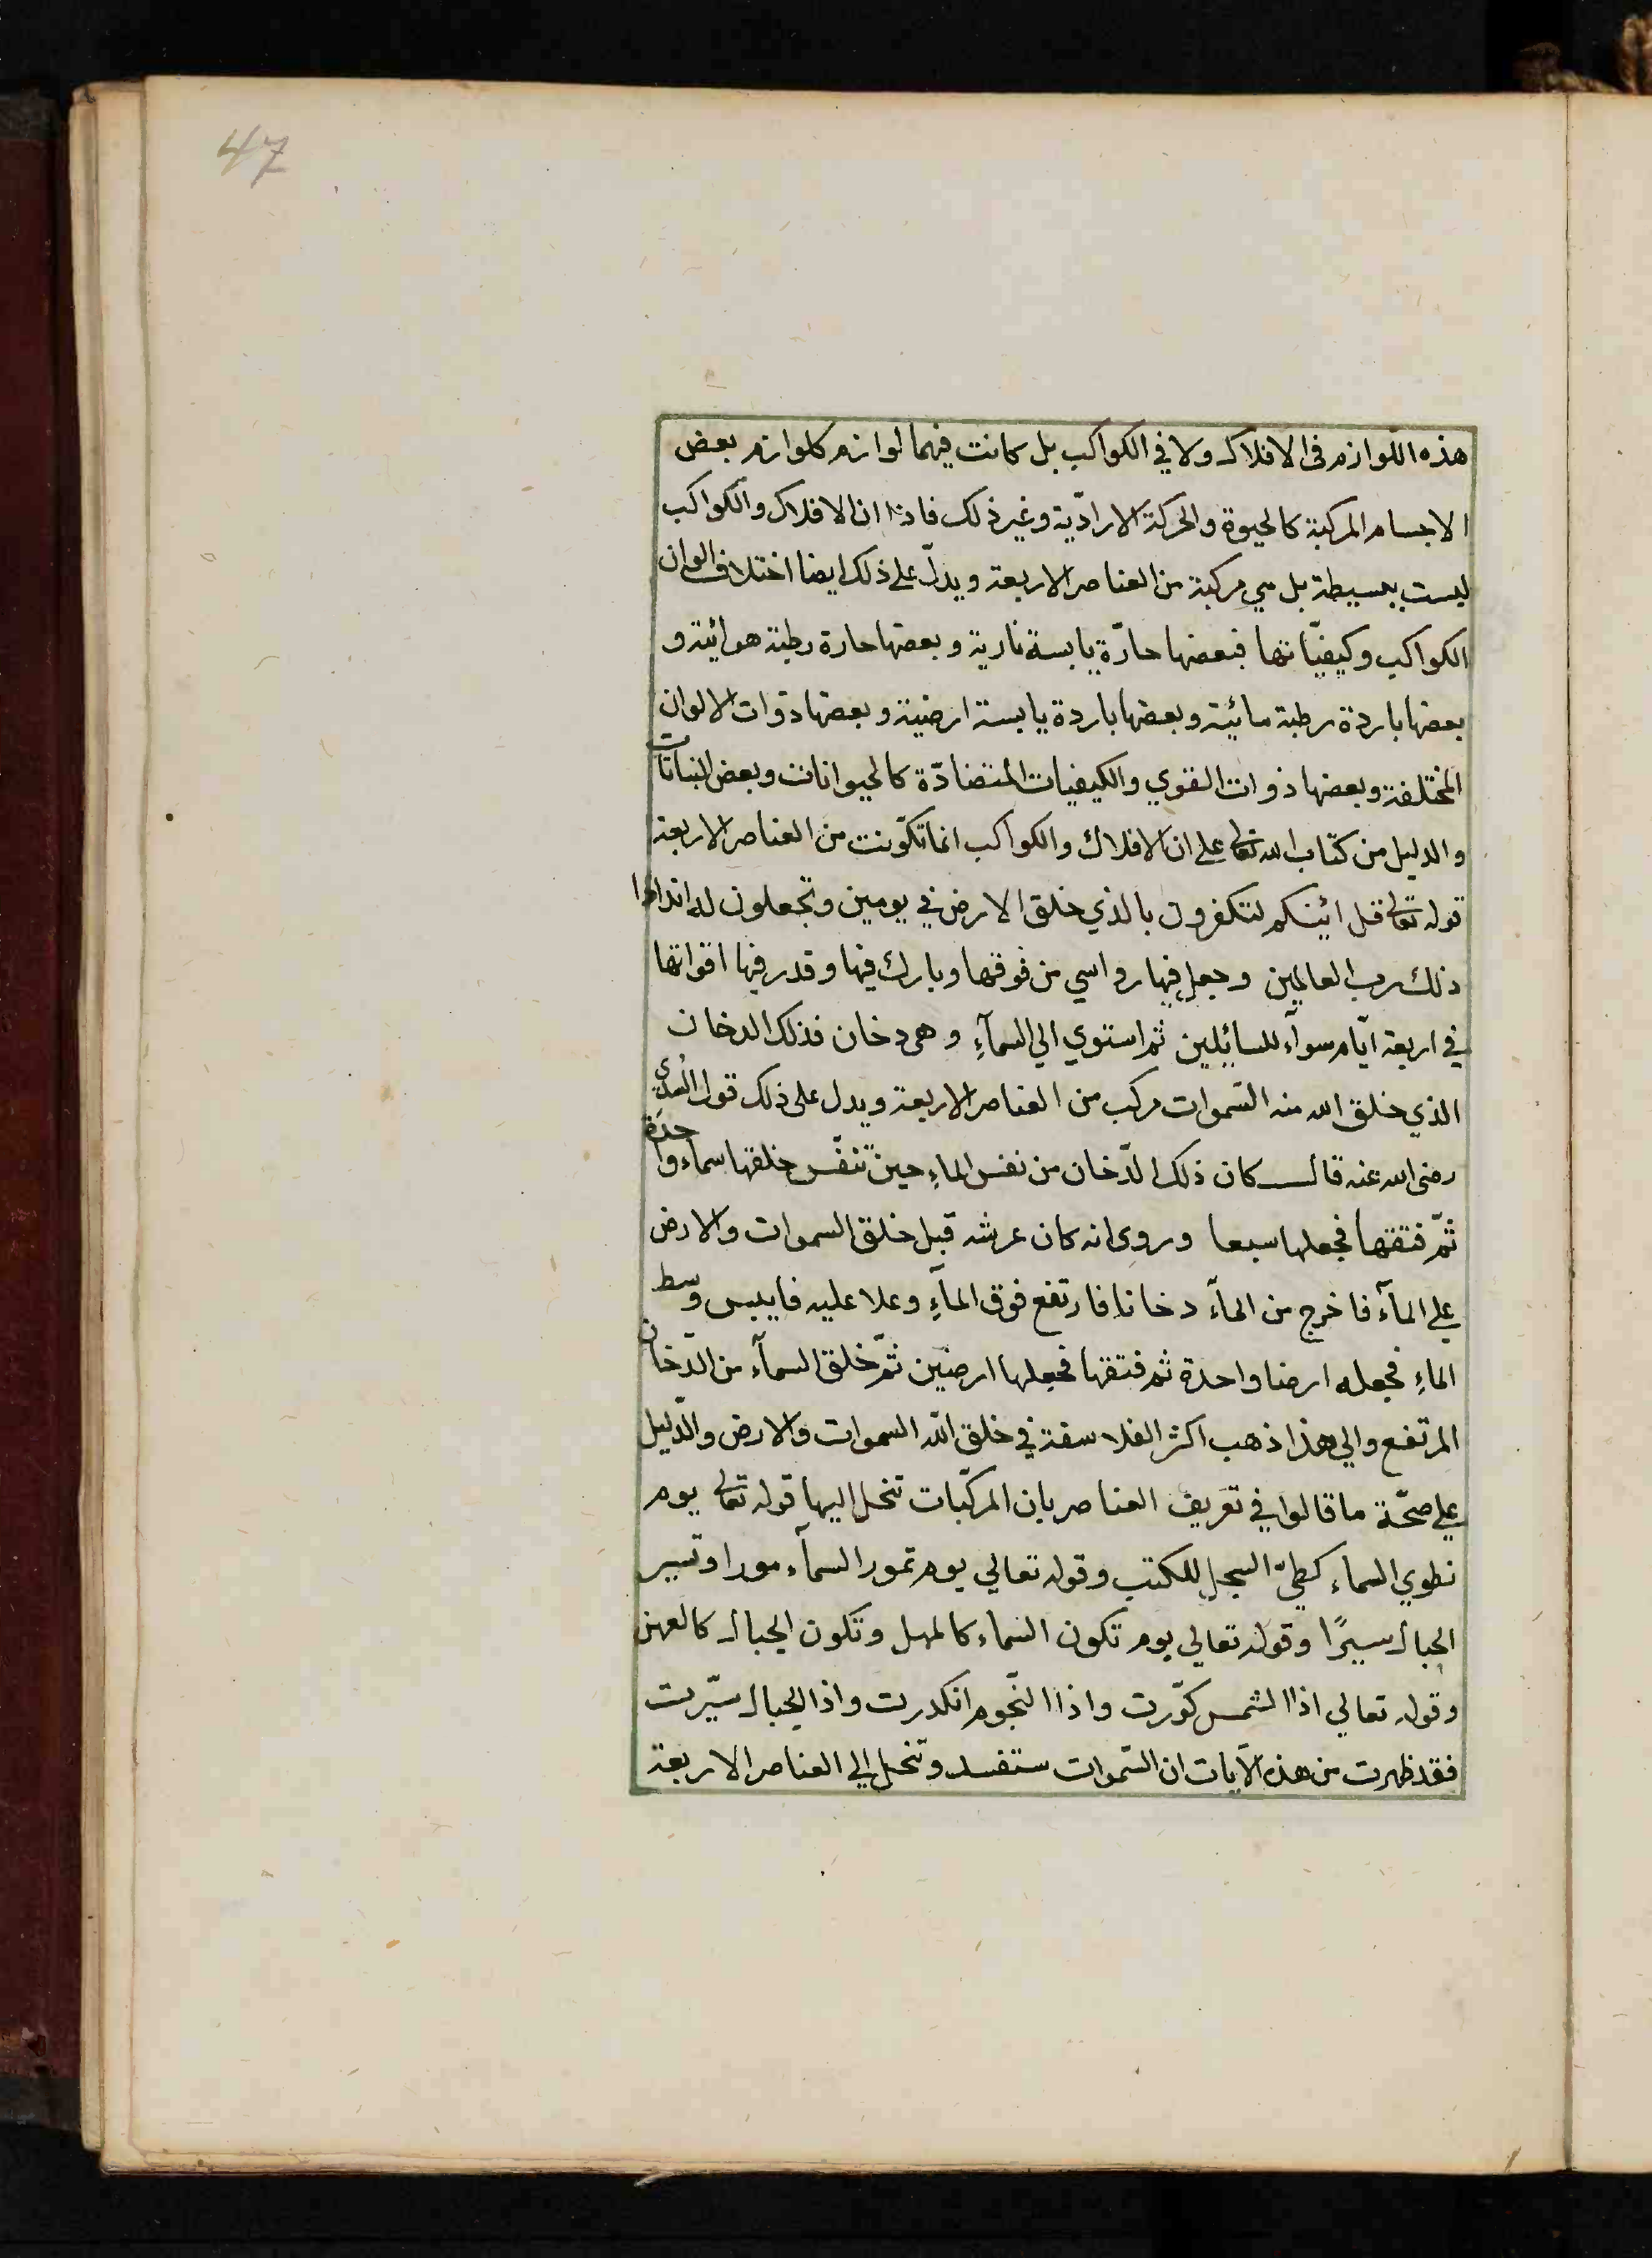 47
هذه اللوازم فى الافلاك ولا في الكواكب بل كانت فيهما لوازم كلوازم بعض
الاجسام المركبة كالحيوة والحركة الاراديّة وغير ذلك فاذا ان الافلاك والكواكب
ليست ببسيطة بل هي مركبة من العناصر الاربعة ويدلّ على ذلك ايضا اختلاف الوان
الكواكب وكيفيّاتها فبعضها حارّة يابسة نارية وبعضها حارة رطبة هوائية و
بعضها باردة رطبة مائية وبعضها باردة يابسة ارضية وبعضها ذوات الالوان
المختلفة وبعضها ذوات القوي والكيفيات المتضادّة كالحيوانات وبعض النباتات
والدليل من كتاب الله تعالى على ان الافلاك والكواكب انما تكوّنت من العناصر الاربعة
قوله تعالى قل ائينكم لتكفرون بالذي خلق الارض في يومين وتجعلون له اندادا
ذلك رب العالمين وجعل فيها رواسي من فوقها وبارك فيها وقدر فيها اقواتها
في اربعة ايّام سوآء للسائلين ثم استوي الي السمآءِ وهى دخان فذلك الدخان
الذي خلق الله منه السّموات مركب من العناصر الاربعة ويدل على ذلك قول السدى
رضى الله عنه قال كان ذلك الدّخان من نفس الماءِ حين تنفّس خلقها سماء واحدة
ثمّ فتقها فجعلها سبعا وروى انه كان عرشه قبل خلق السموات والارض
علي المآء فاخرج من المآء دخانا فارتفع فوق المآءِ وعلا عليه فايبس وسط
الماءِ فجعله ارضا واحدة ثم فتقها فجعلها ارضين ثمّ خلق السمآء من الدّخان
المرتفع والي هذا ذهب اكثر الفلاسفة في خلق اللّه السموات والارض والدّليل
علي صحّة ما قالوا في تعريف العناصر بان المركّبات تنحل اليها قوله تعالى يوم
نطوي السماء كطيّ السجل للكتب وقوله تعالي يوم تمور السمآء مورا وتسير
الجبال سيرًا وقوله تعالي يوم تكون السماء كالمهل وتكون الجبال كالعهن
وقوله تعالي اذا الشمس كوّرت واذا النّجوم انكدرت واذا الجبال سيّرت
فقد ظهرت من هذه الآيات ان السّموات ستفسد وتنحل الي العناصر الاربعة